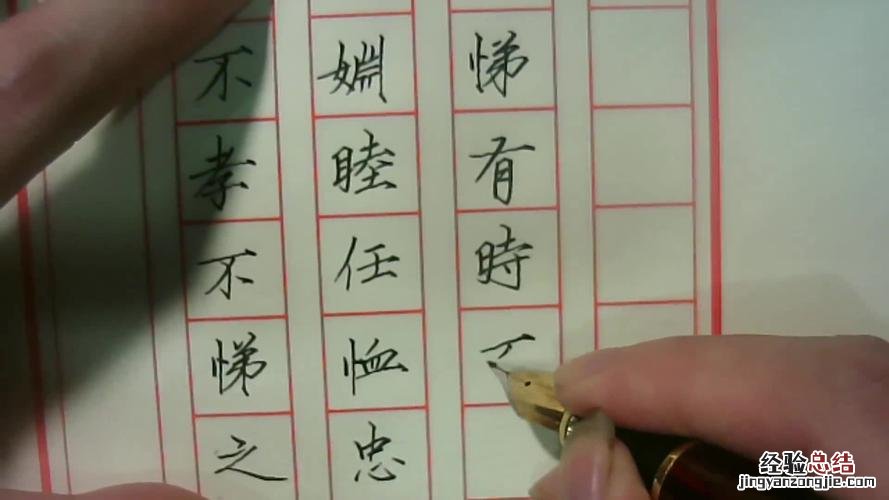 不孝不悌之
婣睦任恤忠
悌有時
经验总结
jingyanzongjie.com